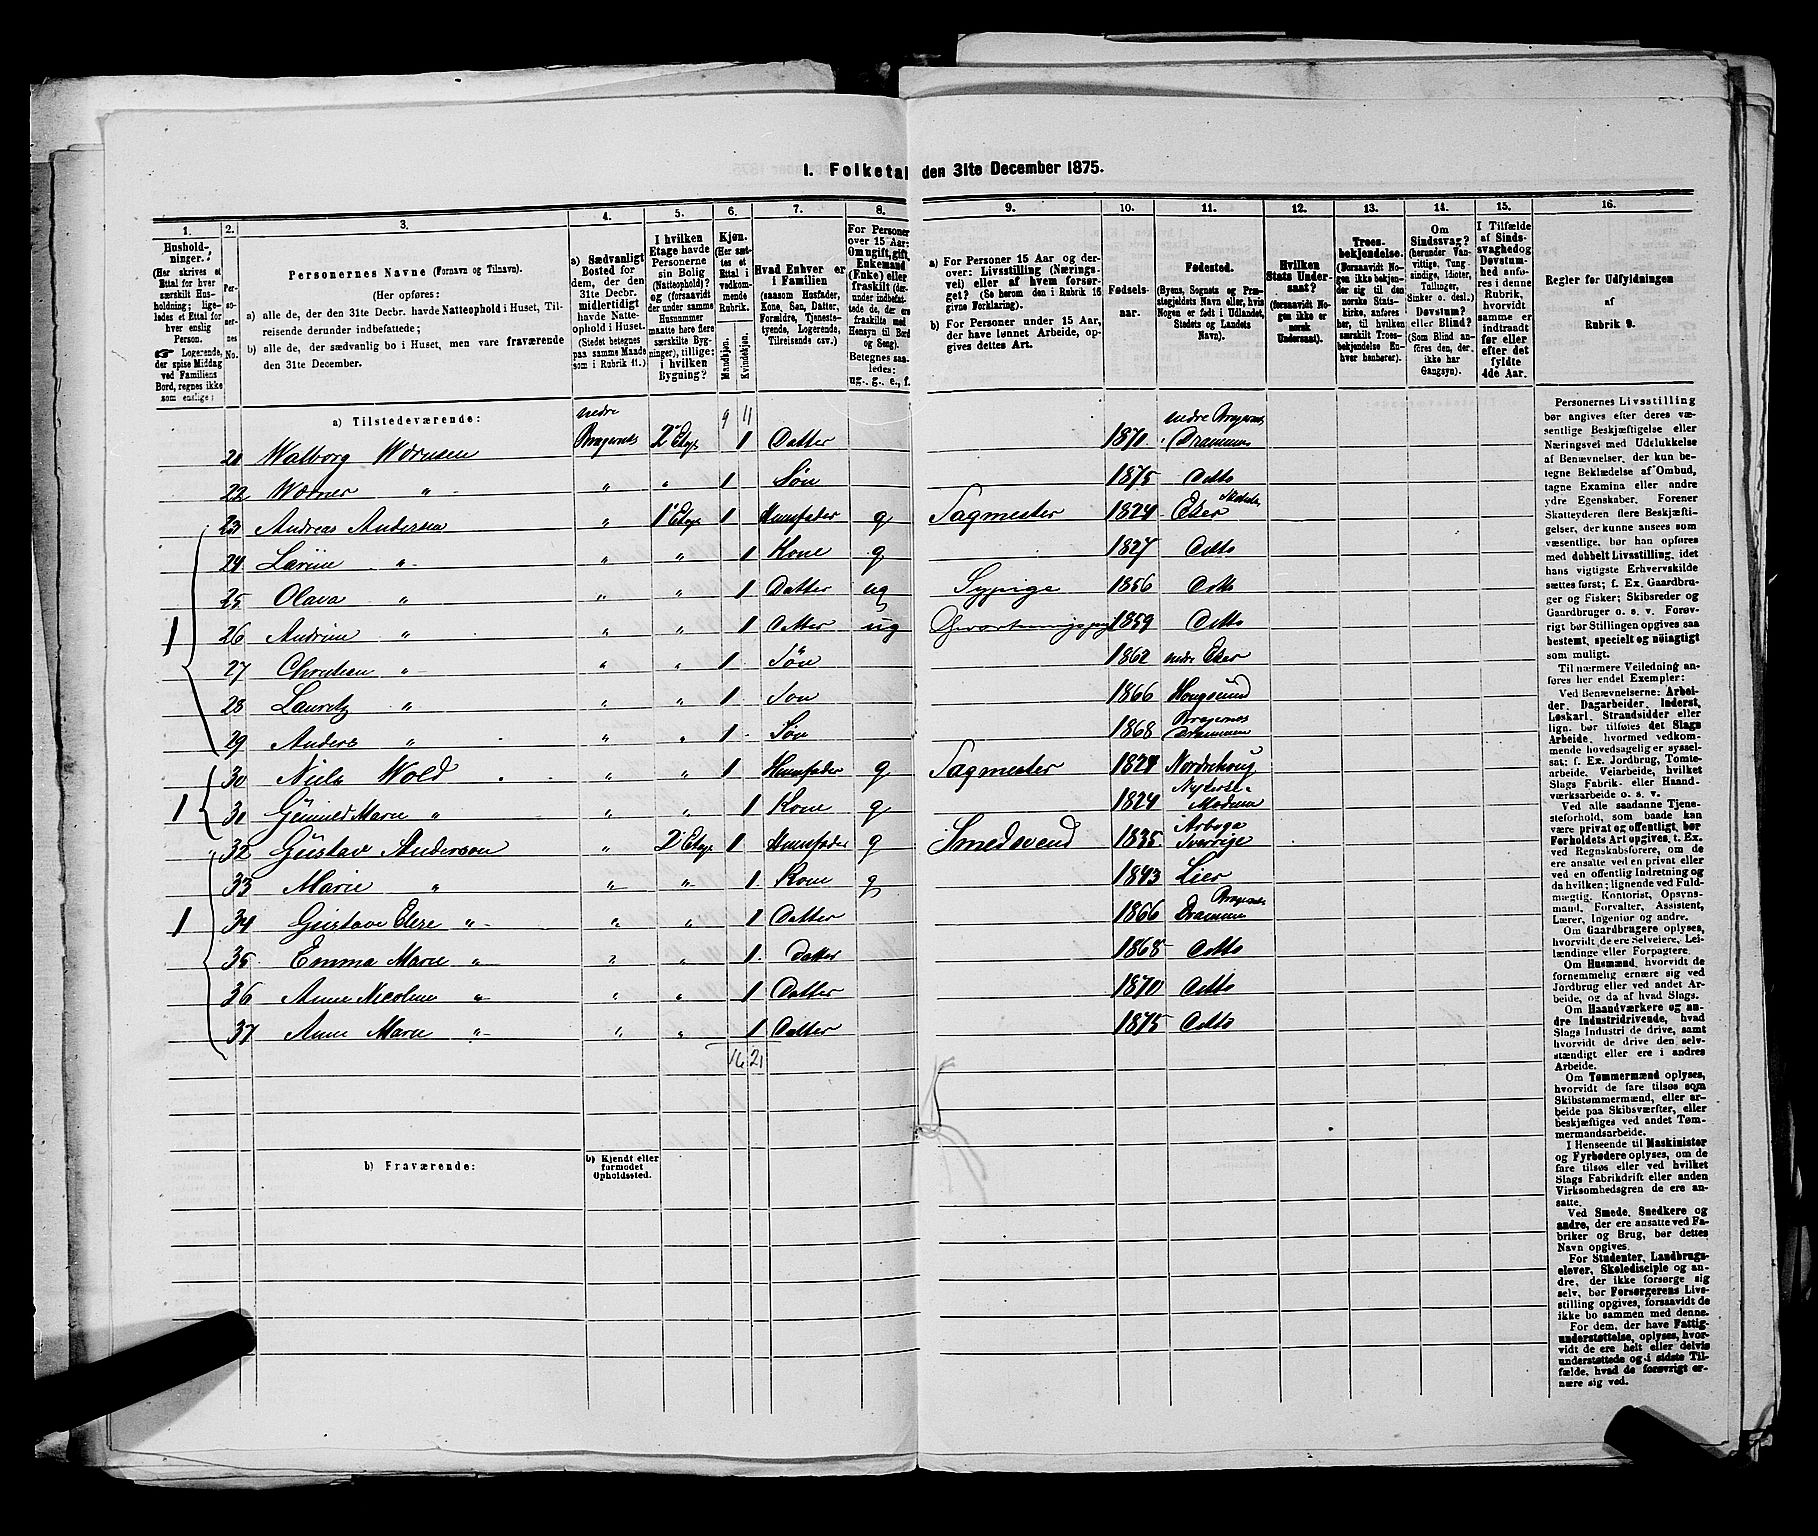 I. Folketal den 31te December 1875.
1. 2. 3. 4. 5. 6. 7. 8. 9. 10. 11. 12. 13. 14. 15. 16.
Husholdninger.
(Her skrives et Ettal for hver særskilt Husholdning; ligeledes et Ettal for hver enslig Person.
☞ Logerende, der spise Middag ved Familiens Bord, regnes ikke som enslige.)
Personernes No.
Personernes Navne (Fornavn og Tilnavn).
(Her opføres:
a) alle de, der den 31te Decbr. havde Natteophold i Huset, Tilreisende derunder indbefattede;
b) alle de, der sædvanlig bo i Huset, men vare fraværende den 31te December.
a) Sædvanligt Bosted for dem, der den 31te Decbr. midlertidigt havde Natteophold i Huset. (Stedet betegnes paa samme Maade som i Rubrik 11.)
I hvilken Etage havde Personerne sin Bolig (Natteophold)? og (forsaavidt der under samme Husnummer maatte høre flere særskilte Bygninger), tillige: i hvilken Bygning?
Kjøn. (Her sættes et Ettal i vedkommende Rubrik.
Mandkjøn.
Kvindekjøn.
Hvad Enhver er i Familien
(saasom Husfader, Kone, Søn, Datter, Forældre, Tjenestetyende, Logerende, Tilreisende osv.)
For Personer over 15 Aar: Om ugift, gift, Enkemand (Enke) eller fraskilt
Betegnes saaledes: ug., g., e., f.
a) For Personer 15 Aar og derover: Livsstilling (Næringsvei) eller af hvem forsørget? (Se herom den i Rubrik 16 givne Forklaring).
b) For Personer under 15 Aar, der have lønnet Arbeide, opgives dettes Art.
Fødselsaar.
Fødested.
(Byens, Sognets og Præstegjeldets Navn eller, hvis Nogen er født i Udlandet, Stedets og Landets Navn).
Hvilken Stats Undersaat?
(forsaavidt Nogen ikke er norsk Undersaat).
Troesbekjendelse.
(Forsaavidt Nogen ikke bekjender sig til den norske Statskirke, anføres her, til hvilken særskilt Troesbekjendelse Enhver henhører).
Om Sindssvag? (herunder Vanvittige, Tungsindige, Idioter, Tullinger, Sinker o. desl.) Døvstum? eller Blind? (Som Blind anføres den, der ikke har Gangsyn).
I Tilfælde af Sindssvaghed og Døvstumhed anføres i denne Rubrik, hvorvidt samme er indtraadt før eller efter det fyldte 4de Aar.
Regler for Udfyldningen af Rubrik 9.
a) Tilstedeværende:
9 11
21 Walborg Wornsen nedre Bragernes 2 Etage 1 Datter 1870 nedre Bragernes Drammen
22 Worner " " " 1 Søn 1875 Ditto
23 Andreas Andersen " 1 Etage 1 Huusfader g Sagmester 1824 Eker
24 Larine " " " 1 Kone g 1827 Ditto
25 Olava " " " 1 Datter ug Sypige 1856 Ditto
1 26 Andrine " " " 1 Datter ug 1859 Ditto
27 Christian " " " 1 Søn 1862 nedre Eker
28 Lauritz " " " 1 Søn 1866 Hougsund
29 Anders " " " 1 Søn 1868 Bragernes Drammen
30 Niels Wold " " 1 Huusfader g Sagmester 1824 Nordrehoug
1 31 Gunild Marie " " " 1 Kone g 1824 Modum
32 Gustav Anderson " 2 Etage 1 Huusfader g Smedsvend 1835 Arboga Sverrige
33 Marie " " " 1 Kone g 1843 Lier
1 34 Gustava Elise " " " 1 Datter 1866 Bragernes Drammen
35 Emma Marie " " " 1 Datter 1868 Ditto
36 Anne Nicoline " " " 1 Datter 1870 Ditto
37 Anne Marie " " " 1 Datter 1875 Ditto
16 21
b) Fraværende:
b) Kjendt eller formodet Opholdssted.
Personernes Livsstilling
bør angives efter deres væsentlige Beskjæftigelse eller
Næringsvei med Udelukkelse
af Benævnelser, der kun betegne Beklædelse af Ombud,
tagne Examina eller andre
ydre Egenskaber. Forener
Skatteyderen flere Beskjæftigelser, der kunne ansees som
væsentlige, bør han opføres
med dobbelt Livsstilling, idet
hans vigtigste Erhvervskilde
sættes først; f. Ex. Gaardbruger og Fisker; Skibsreder og
Gaardbruger o. s. v. Forøvrigt bør Stillingen opgives saa
bestemt, specielt og nöiagtigt
som muligt.
Til nærmere Veiledning anføres her endel Exempler:
Ved Benævnelserne: Arbeider, Dagarbeider, Inderst,
Løskarl, Strandsidder eller
lign. bør tilføies det Slags
Arbeide, hvormed vedkommende hovedsagelig er sysselsat; f. Ex. Jordbrug, Tomtearbeide, Veiarbeide, hvilket
Slags Fabrik- eller Haandværksarbeide o. s. v.
Ved alle saadanne Tjenesteforhold, som baade kan
være privat og offentlig, bør
Forholdets Art opgives, t. Ex.
ved Regnskabsførere, om de
ere ansatte ved en privat eller
ved en offentlig Indretning og
da hvilken; lignende ved Fuldmægtig, Kontorist, Opsynsmand, Forvalter, Assistent,
Lærer, Ingeniør og andre.
Om Gaardbrugere oplyses,
hvorvidt de ere Selveiere, Leilændinge eller Forpagtere.
Om Husmænd, hvorvidt de
fornemmelig ernære sig ved
Jordbrug eller ved andet Arbeide, og da af hvad Slags.
Om Haandværkere og andre Industridrivende, hvad
Slags Industri de drive, samt
hvorvidt de drive den selvstændigt eller ere i andres
Arbeide.
Om Tømmermænd oplyses,
hvorvidt de fare tilsøs som
Skibstømmermænd, eller arbeide paa Skibsværfter, eller
beskjæftiges ved andet Tømmermandsarbeide.
I Henseende til Maskinister
og Fyrbødere oplyses, om de
fare tilsøs eller ved hvilket
Slags Fabrikdrift eller anden
Virksomhedsgren de ere ansatte.
Ved Smede, Snedkere og
andre, der ere ansatte ved Fabriker og Brug, bør dettes
Navn opgives.
For Studenter, Landbrugselever, Skoledisciple og andre, der ikke forsørge sig
selv, bør Forsørgerens Livsstilling opgives, forsaavidt de
ikke bo sammen med denne.
For dem, der have Fattigunderstøttelse, oplyses, hvorvidt de ere helt eller delvis
understøttede og i sidste Tilfælde, hvad de forøvrigt ernære sig ved.